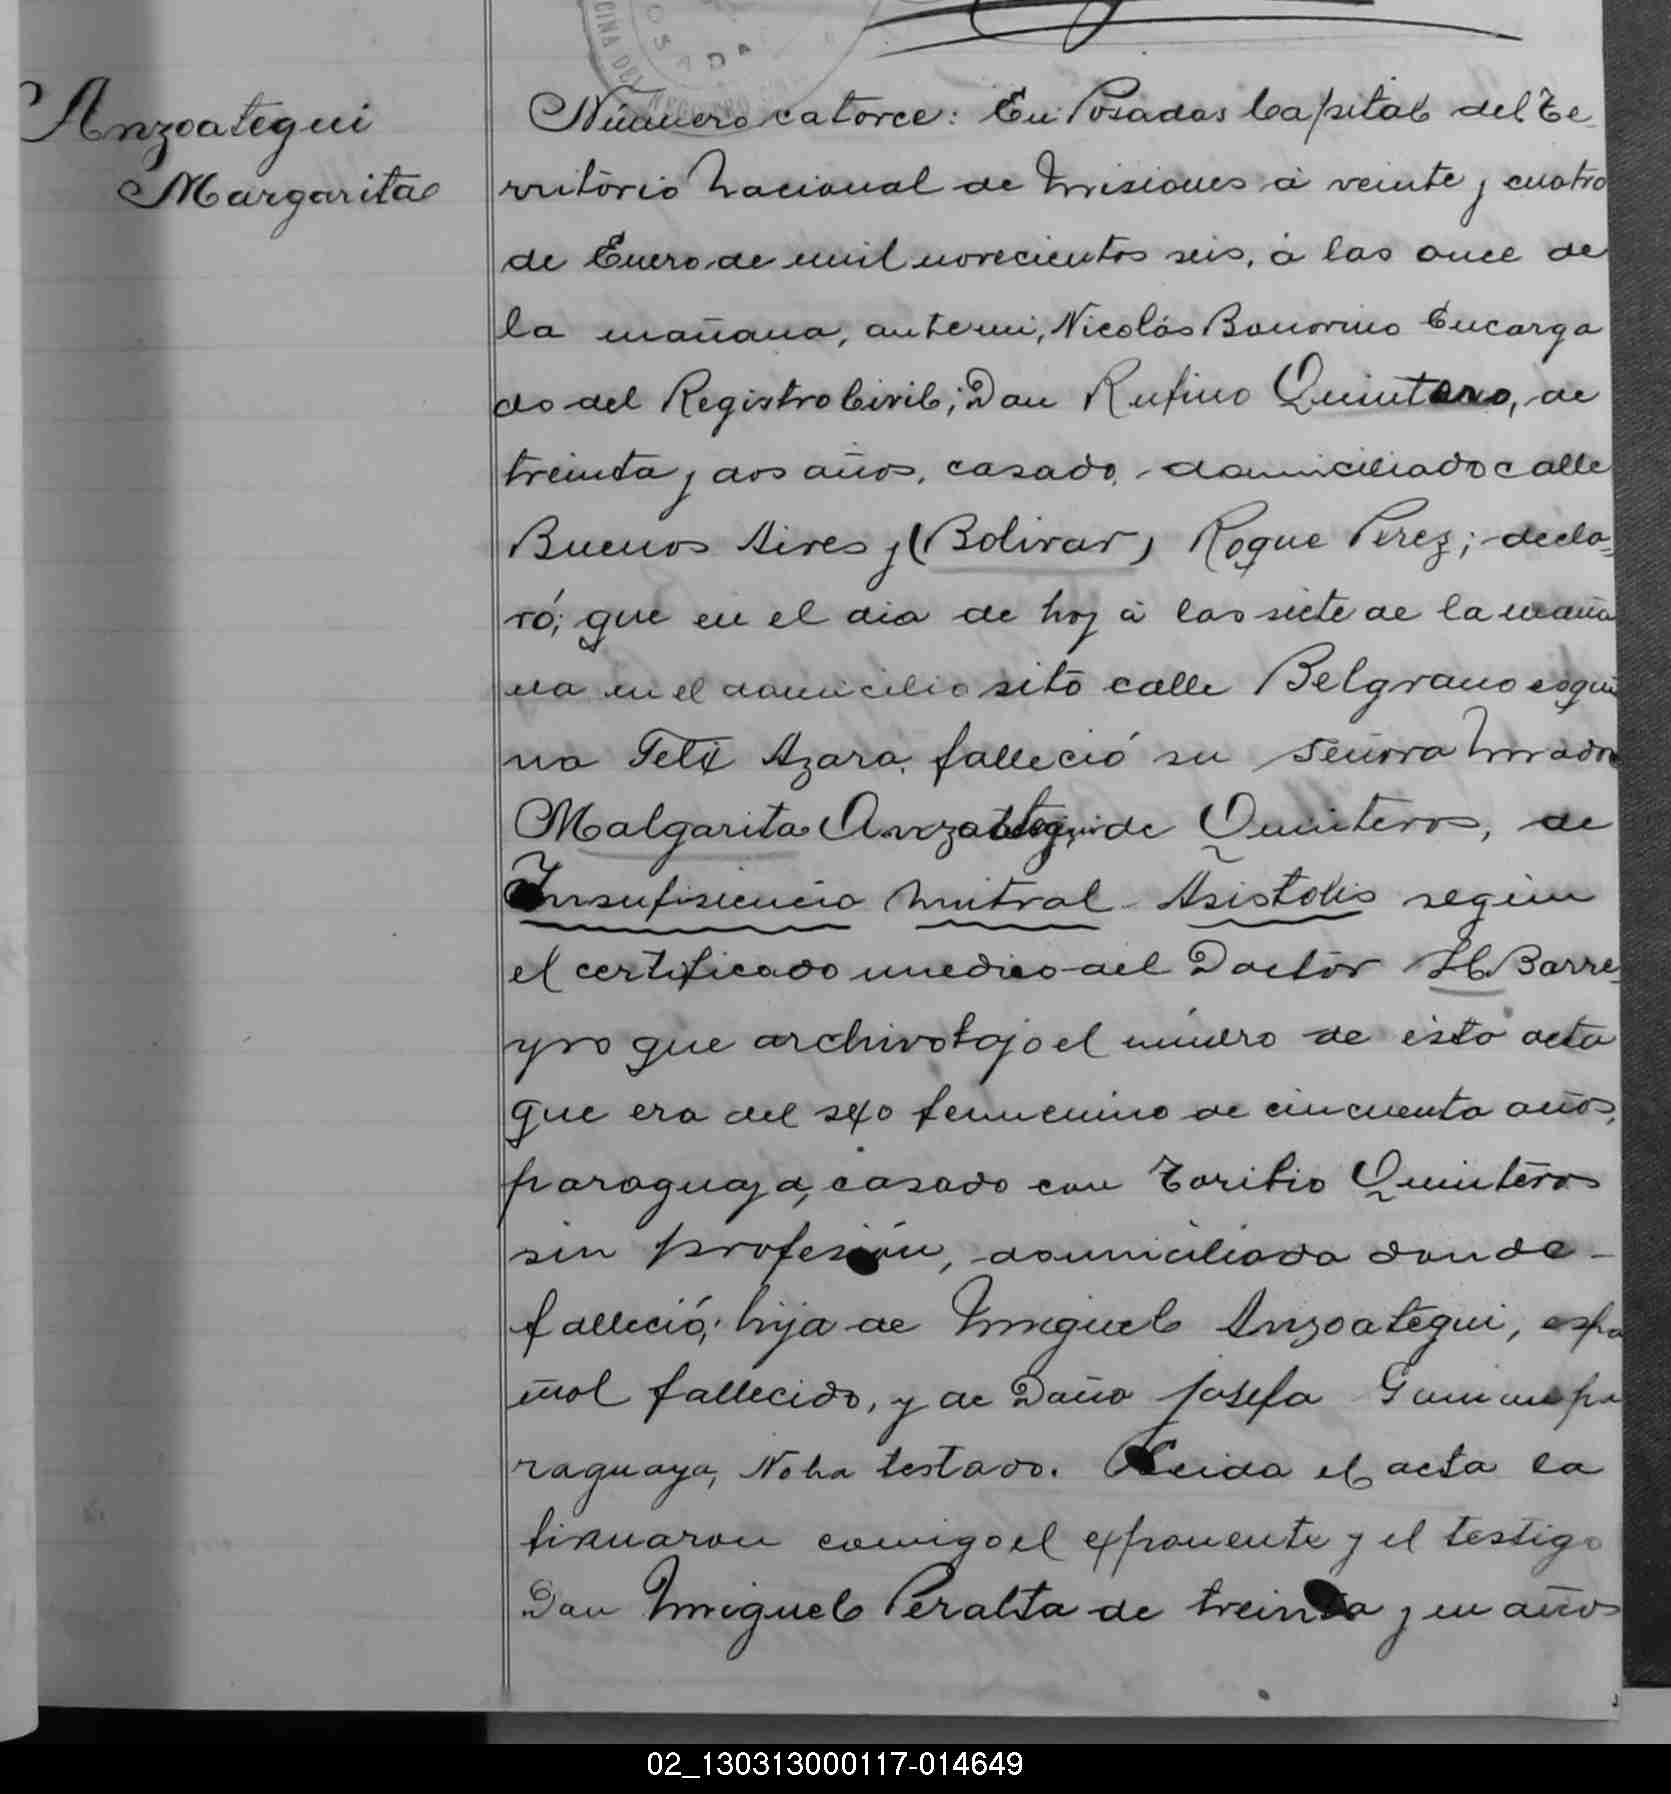 Anzoategui
Margarita
Número catorce: En Posadas Capital del Te-
rritório Nacional de Misiones á veinte y cuatro
de Enero de mil novecientos seis, á las once de
la mañana, ante mi, Nicolás Bonorino Encarga
do del Registro Civil; Don Rufino Quintero, de
treinta y dos años, casado, domiciliado calle
Buenos Aires y (Bolivar) Roque Perez; decla-
ró; que en el dia de hoy á las siete de la maña
na en el domicilio sito calle Belgrano esqui
na Felix Azara, falleció su señora madre
Malgarita Anzoategui de Quinteros, de
Insufisiencia Mitral Asistolis según
el certificado medico del Doctor H. Barre-
yro que archivo bajo el número de ésta acta
que era del sexo femenino de cincuenta años,
paraguaya, casado con Toribio Quinteros
sin profesión, domiciliada donde-
falleció; hija de Miguel Anzoategui, espa
ñol fallecido, y de Doña Josefa pa
raguaya, No ha testado. Leida el acta la
firmaron comigo el exponente y el testigo
Don Miguel Peralta de treinta y un años
02_130313000117-014649